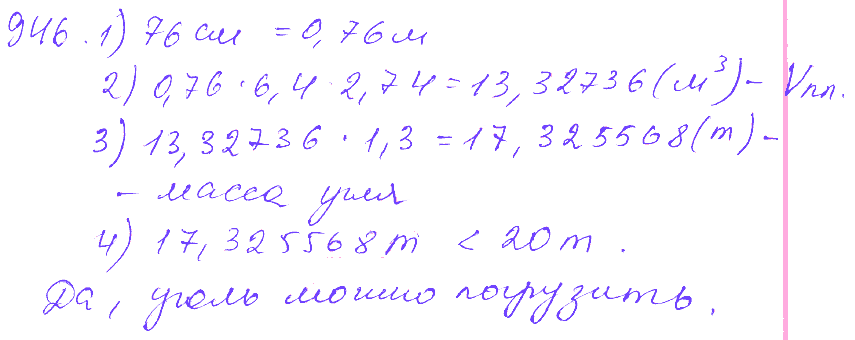 946. 1) 76 см = 0,76 м
2) 0,76 · 6,4 · 2,74 = 13,32736 (м³) – Vпл.
3) 13,32736 · 1,3 = 17,325568 (т) –
– масса угля
4) 17,325568 т < 20 т.
Да, уголь можно погрузить.